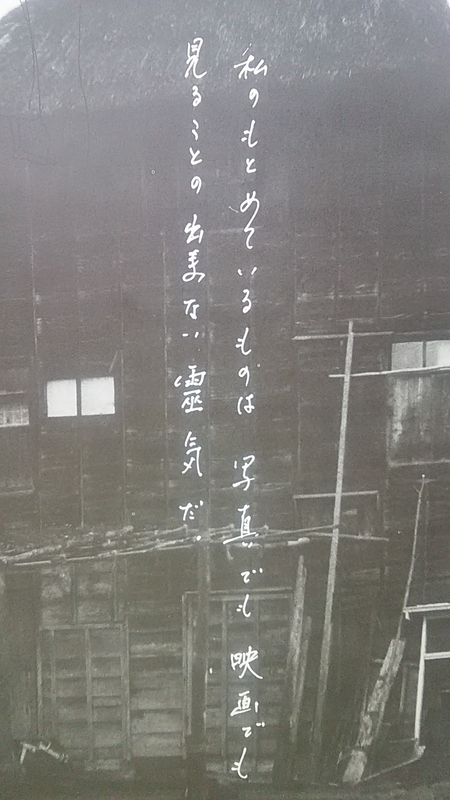 私のもとめているものは 写真でも 映画でも
見ることの出来ない 靈気だ。